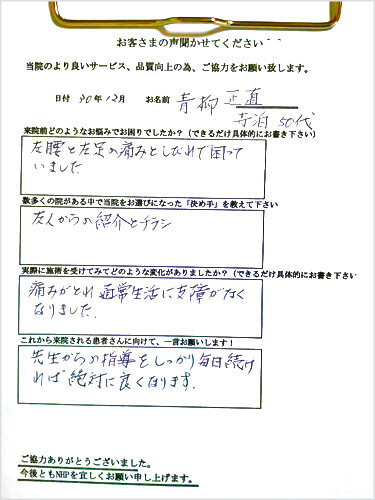 お客さまの声聞かせてください
当院のより良いサービス、品質向上の為、ご協力をお願い致します。
日付 30年12月 お名前 青柳 正直
寺泊 50代
来院前どのようなお悩みでお困りでしたか？（できるだけ具体的にお書き下さい）
左腰と左足の痛みとしびれで困って
いました
数多くの院がある中で当院をお選びになった「決め手」を教えて下さい
友人からの紹介とチラシ
実際に施術を受けてみてどのような変化がありましたか？（できるだけ具体的にお書き下さい
痛みがとれ通常生活に支障がなく
なりました.
これから来院される患者さんに向けて、一言お願いします！
先生からの指導をしっかり毎日続け
れば絶対に良くなります.
ご協力ありがとうございました。
今後ともNHPを宜しくお願い申し上げます。